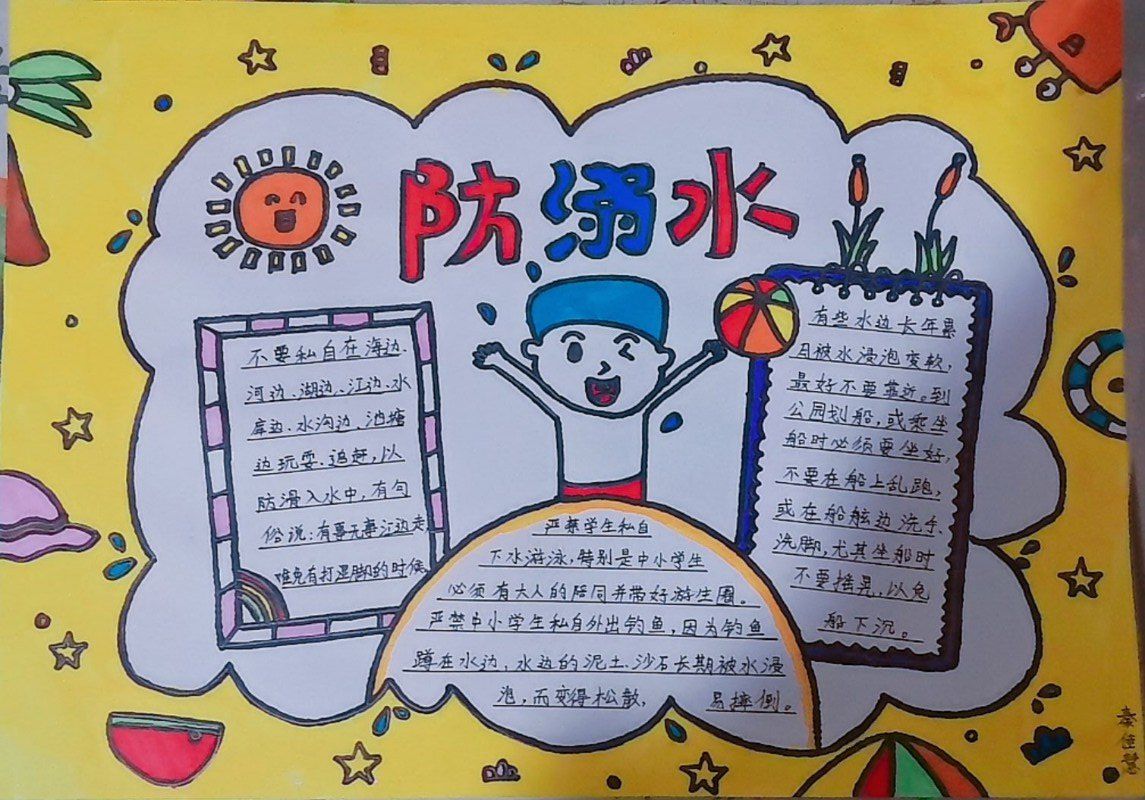 防溺水
不要私自在海边、
河边、湖边、江边、水
库边、水沟边、池塘
边玩耍、追赶,以
防滑入水中,有句
俗说:有事无事江边走
难免有打湿脚的时候
严禁学生私自
下水游泳,特别是中小学生
必须有大人的陪同并带好游生圈。
严禁中小学生私自外出钓鱼,因为钓鱼
蹲在水边,水边的泥土、沙石长期被水浸
泡,而变得松散,易摔倒。
有些水边长年累
月被水浸泡变软,
最好不要靠近。到
公园划船,或乘坐
船时必须要坐好,
不要在船上乱跑,
或在船舷边洗手、
洗脚,尤其坐船时
不要摇晃,以免
船下沉。
秦佳慧